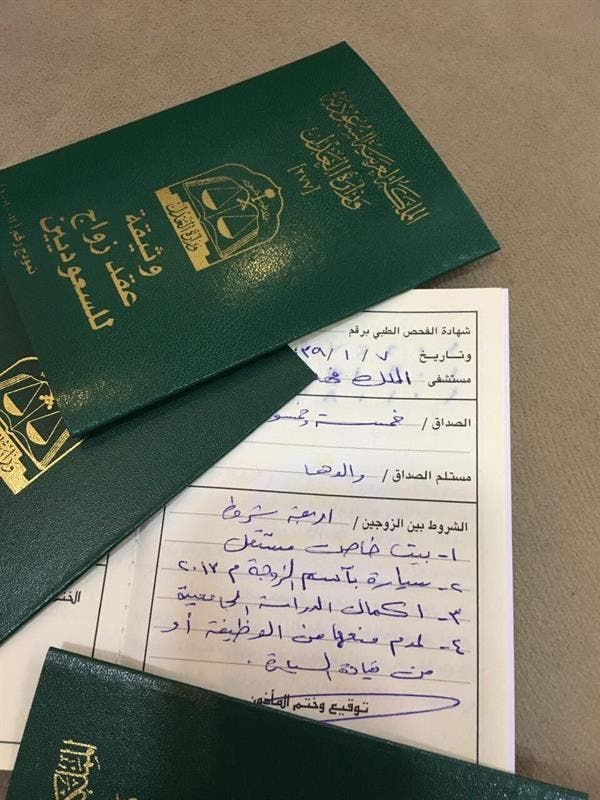 المملكة العربية السعودية
وزارة العدل
[٢٧٧]
وزارة العدل
وثيقة
عقد زواج
للسعوديين
شهادة الفحص الطبي برقم
وتاريخ ٧ / ١ / ٣٩
مستشفى الملك
الصداق / خمسة
مستلم الصداق / والدها
الشروط بين الزوجين / اربعة شروط
١- بيت خاص مستقل
٢- سيارة بآسم الزوجة م ٢٠١٧
٣- اكمال الدراسة الجامعية
٤- لعدم منعها من الوظيفة أو
من قيادة السيارة .
توقيع وختم المأذون